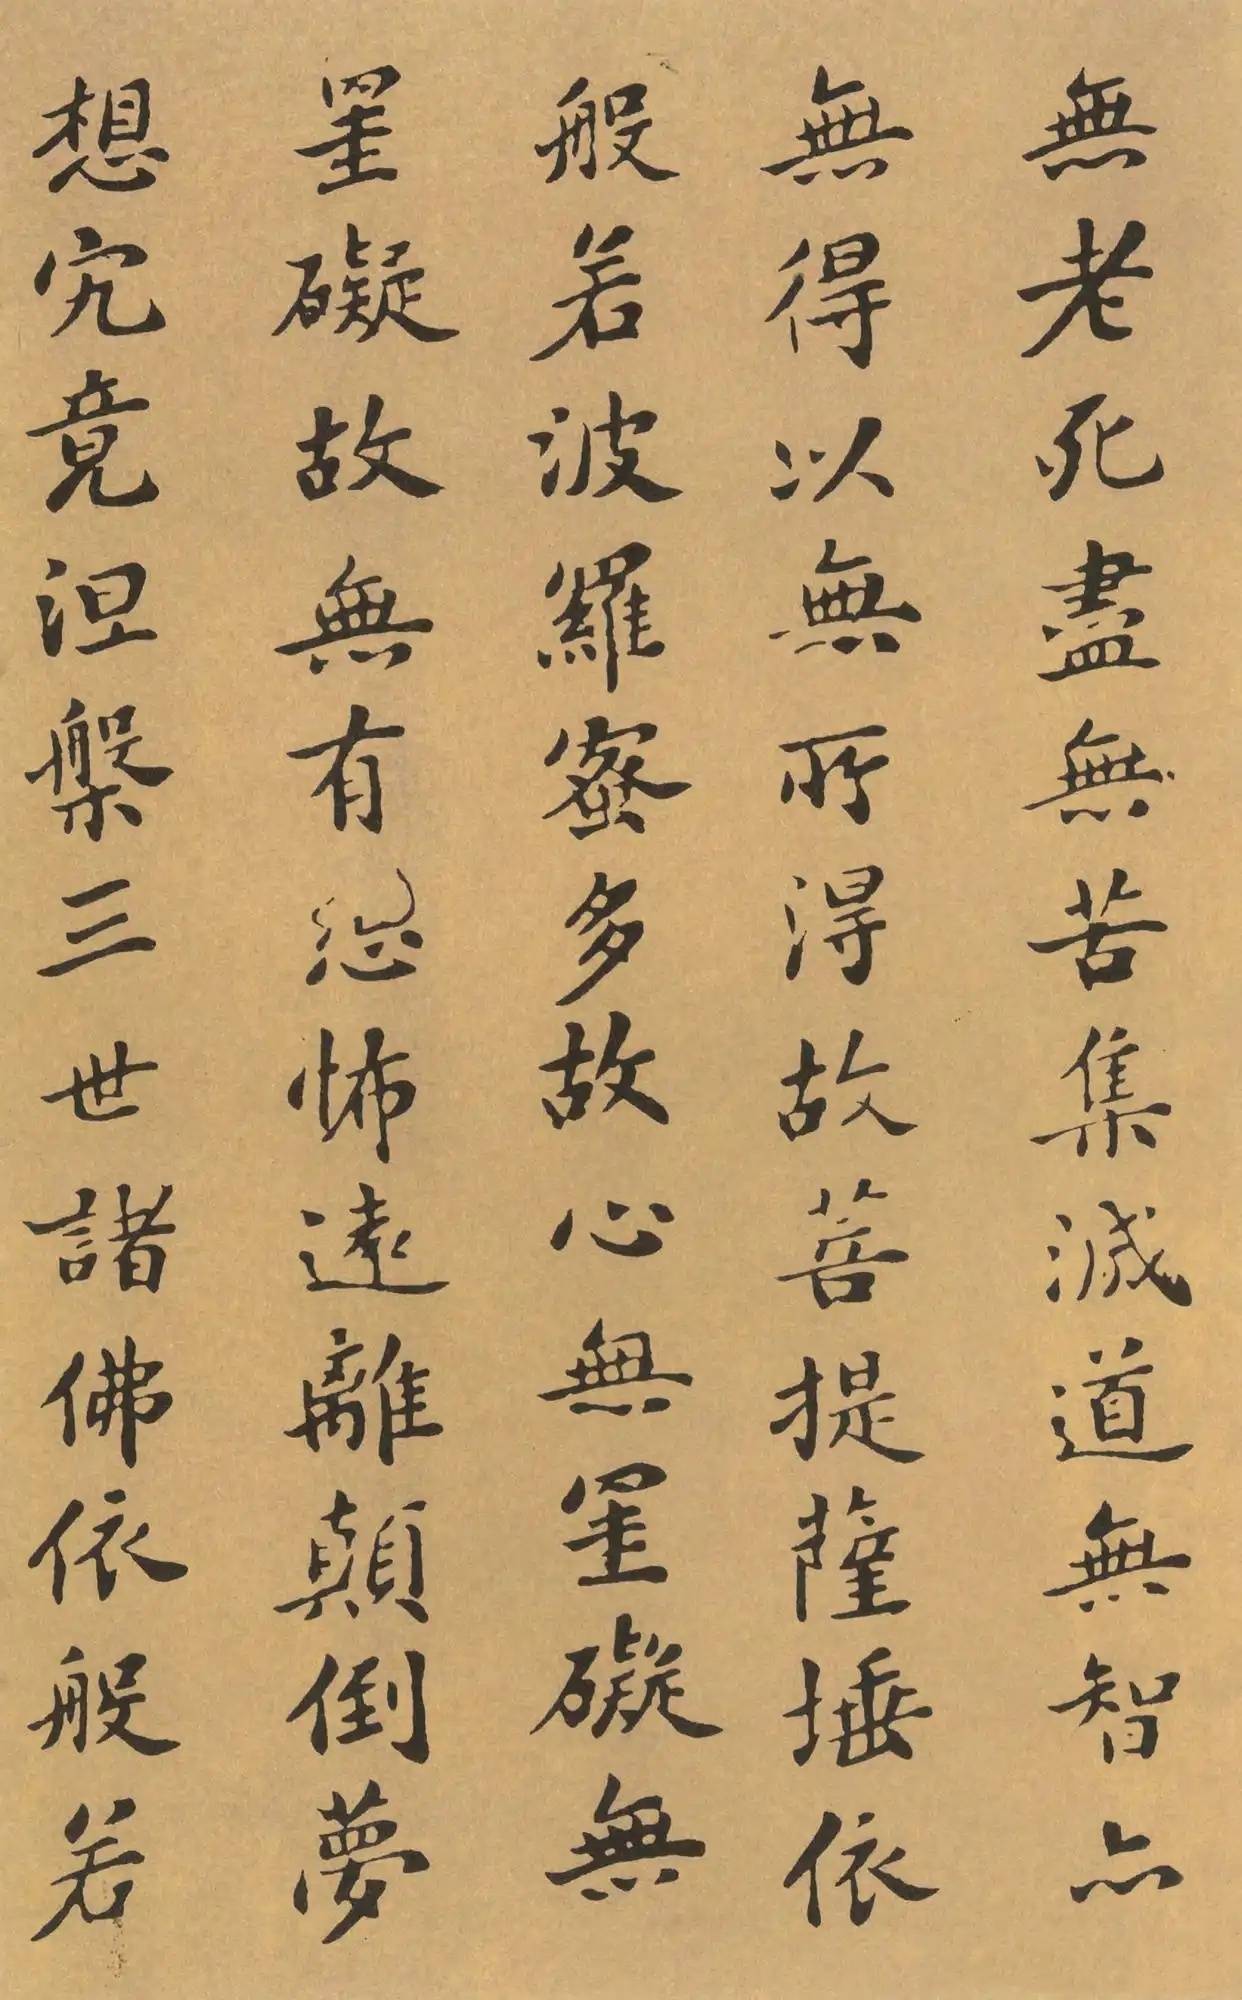 無老死盡無苦集滅道無智亦
無得以無所得故菩提薩埵依
般若波羅蜜多故心無罣礙無
罣礙故無有恐怖遠離顛倒夢
想究竟涅槃三世諸佛依般若